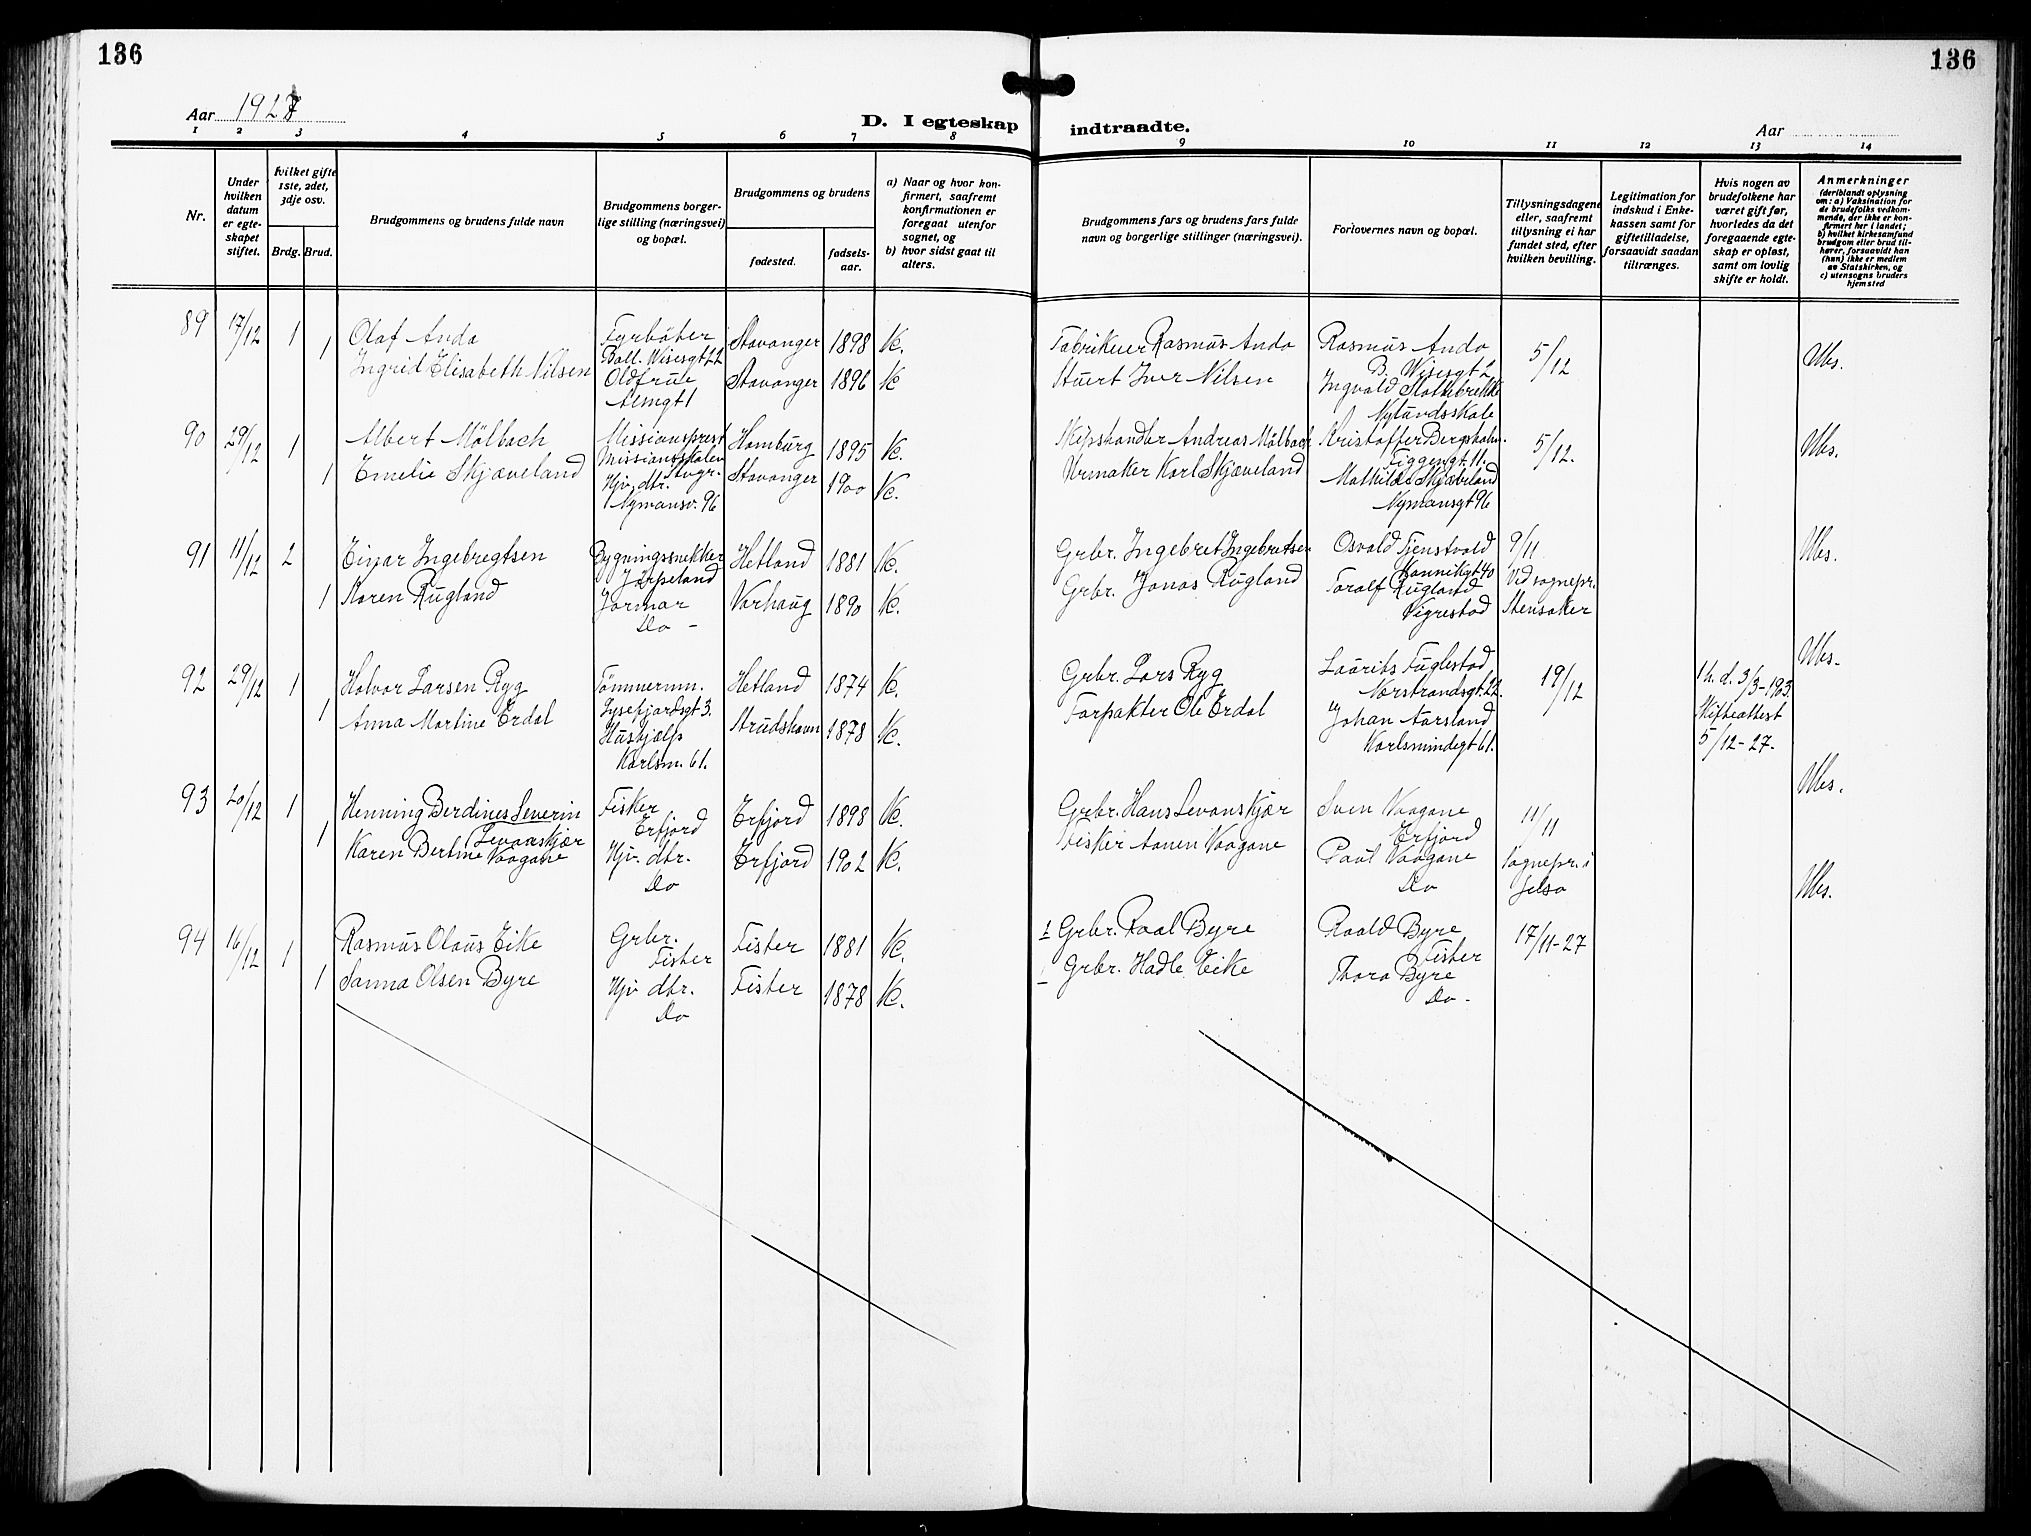 136
136
Aar 1927
D. I egteskap indtraadte.
Aar
1 2 3 4 5 6 7 8 9 10 11 12 13 14
Nr.
Under hvilken datum er egteskapet stiftet.
hvilket gifte 1ste, 2det, 3dje osv.
Brdg. Brud.
Brudgommens og brudens fulde navn
Brudgommens borgerlige stilling (næringsvei) og bopæl.
Brudgommens og brudens
fødested.
fødselsaar.
a) Naar og hvor konfirmert, saafremt konfirmutionen er foregaat utenfor sognet, og
b) hvor sidst gaat til alters.
Brudgommens fars og brudens fars fulde navn og borgerlige stillinger (næringsvei).
Forlovernes navn og bopæl.
Tillysningsdagene eller, saafremt tillysning ei har fundet sted, efter hvilken bevilling.
Legitimation for indskud i Enkekassen samt for giftetilladelse, forsaavidt saadan tiltrænges.
Hvis nogen av brudefolkene har været gift før, hvorledes da det foregaaende egteskap er opløst, samt om lovlig skifte er holdt.
Anmerkninger
(deriblandt oplysning om: a) Vaksination for de brudefolks vedkommende, der ikke er konfirmert her i landet; b) hvilket kirkesamfund brudgom eller brud tilhører, forsaavidt han (hun) ikke er medlem av Statskirken, og c) utensogns bruders hjemsted
89 17/12 1 Olaf Anda Fyrbøter Stavanger 1898 K. Fabrikeier Rasmus Anda Rasmus Anda 5/12
Ball. Wisesgt 22 B. Wisesgt 2
1 Ingrid Elisabeth Nilsen Oldfrue Stavanger 1896 K Stuert Iver Nilsen Ingvald Slottebrekke
Almgt 1
90 29/12 1 Albert Mölbach Missionsprest Hamburg 1895 K. Skipshandler Andreas Mölbach Kristoffer Bergsholm 5/12.
Missionsskolen Stvgr. Figgengt. 11.
1 Emelie Skjæveland Hjv. dtr. Stavanger 1900 K. Urmaker Karl Skjæveland Mathilde Skjæveland
Nymansv. 96 Nymansgt 96
91 11/12 2 Einar Ingebregtsen Bygningssnekker Hetland 1881 K. Grbr. Ingebret Ingebretsen Osvald Tjenstvold 9/11
Jørpeland Kannikgt 40
1 Karen Rugland Jormor Varhaug 1890 K. Grbr. Jonas Rugland Toralf Rugland Ved sognepr.
Do - Vigrestad Stensaker
92 29/12 1 Halvor Larsen Ryg Tömmerm. Hetland 1874 K. Grbr. Lars Ryg Laurits Fuglestad 19/12 M. d. 3/3-1903.
Lysefjordsgt 3. Norstrandsgt. 22.
1 Anna Martine Erdal Hushjælp Strudshavn 1878 K. Forpakter Ole Erdal Johan Aarsland Skifteattest
Karlsm. 61. Karlsmindegt 61. 5/12-27.
93 20/12 1 Henning Berdines Severin Levanskjær Fisker Erfjord 1898 K. Grbr. Hans Levanskjær Sven Vaagane 11/11
Erfjord Erfjord
1 Karen Bertine Vaagane Hjv. dtr. Erfjord 1902 K. Fisker Aanen Vaagane Paul Vaagane Sognepr. i
Do Do Jelsa
94 16/12 1 Rasmus Olaus Eike Grbr. Fister 1881 K. 1 Grbr. Roal Byre Roald Byre 17/11-27
Fister Fister
1 Sanna Olsen Byre Hjv dtr. Fister 1878 K. Grbr. Hadle Eike Thora Byre
Do Do -